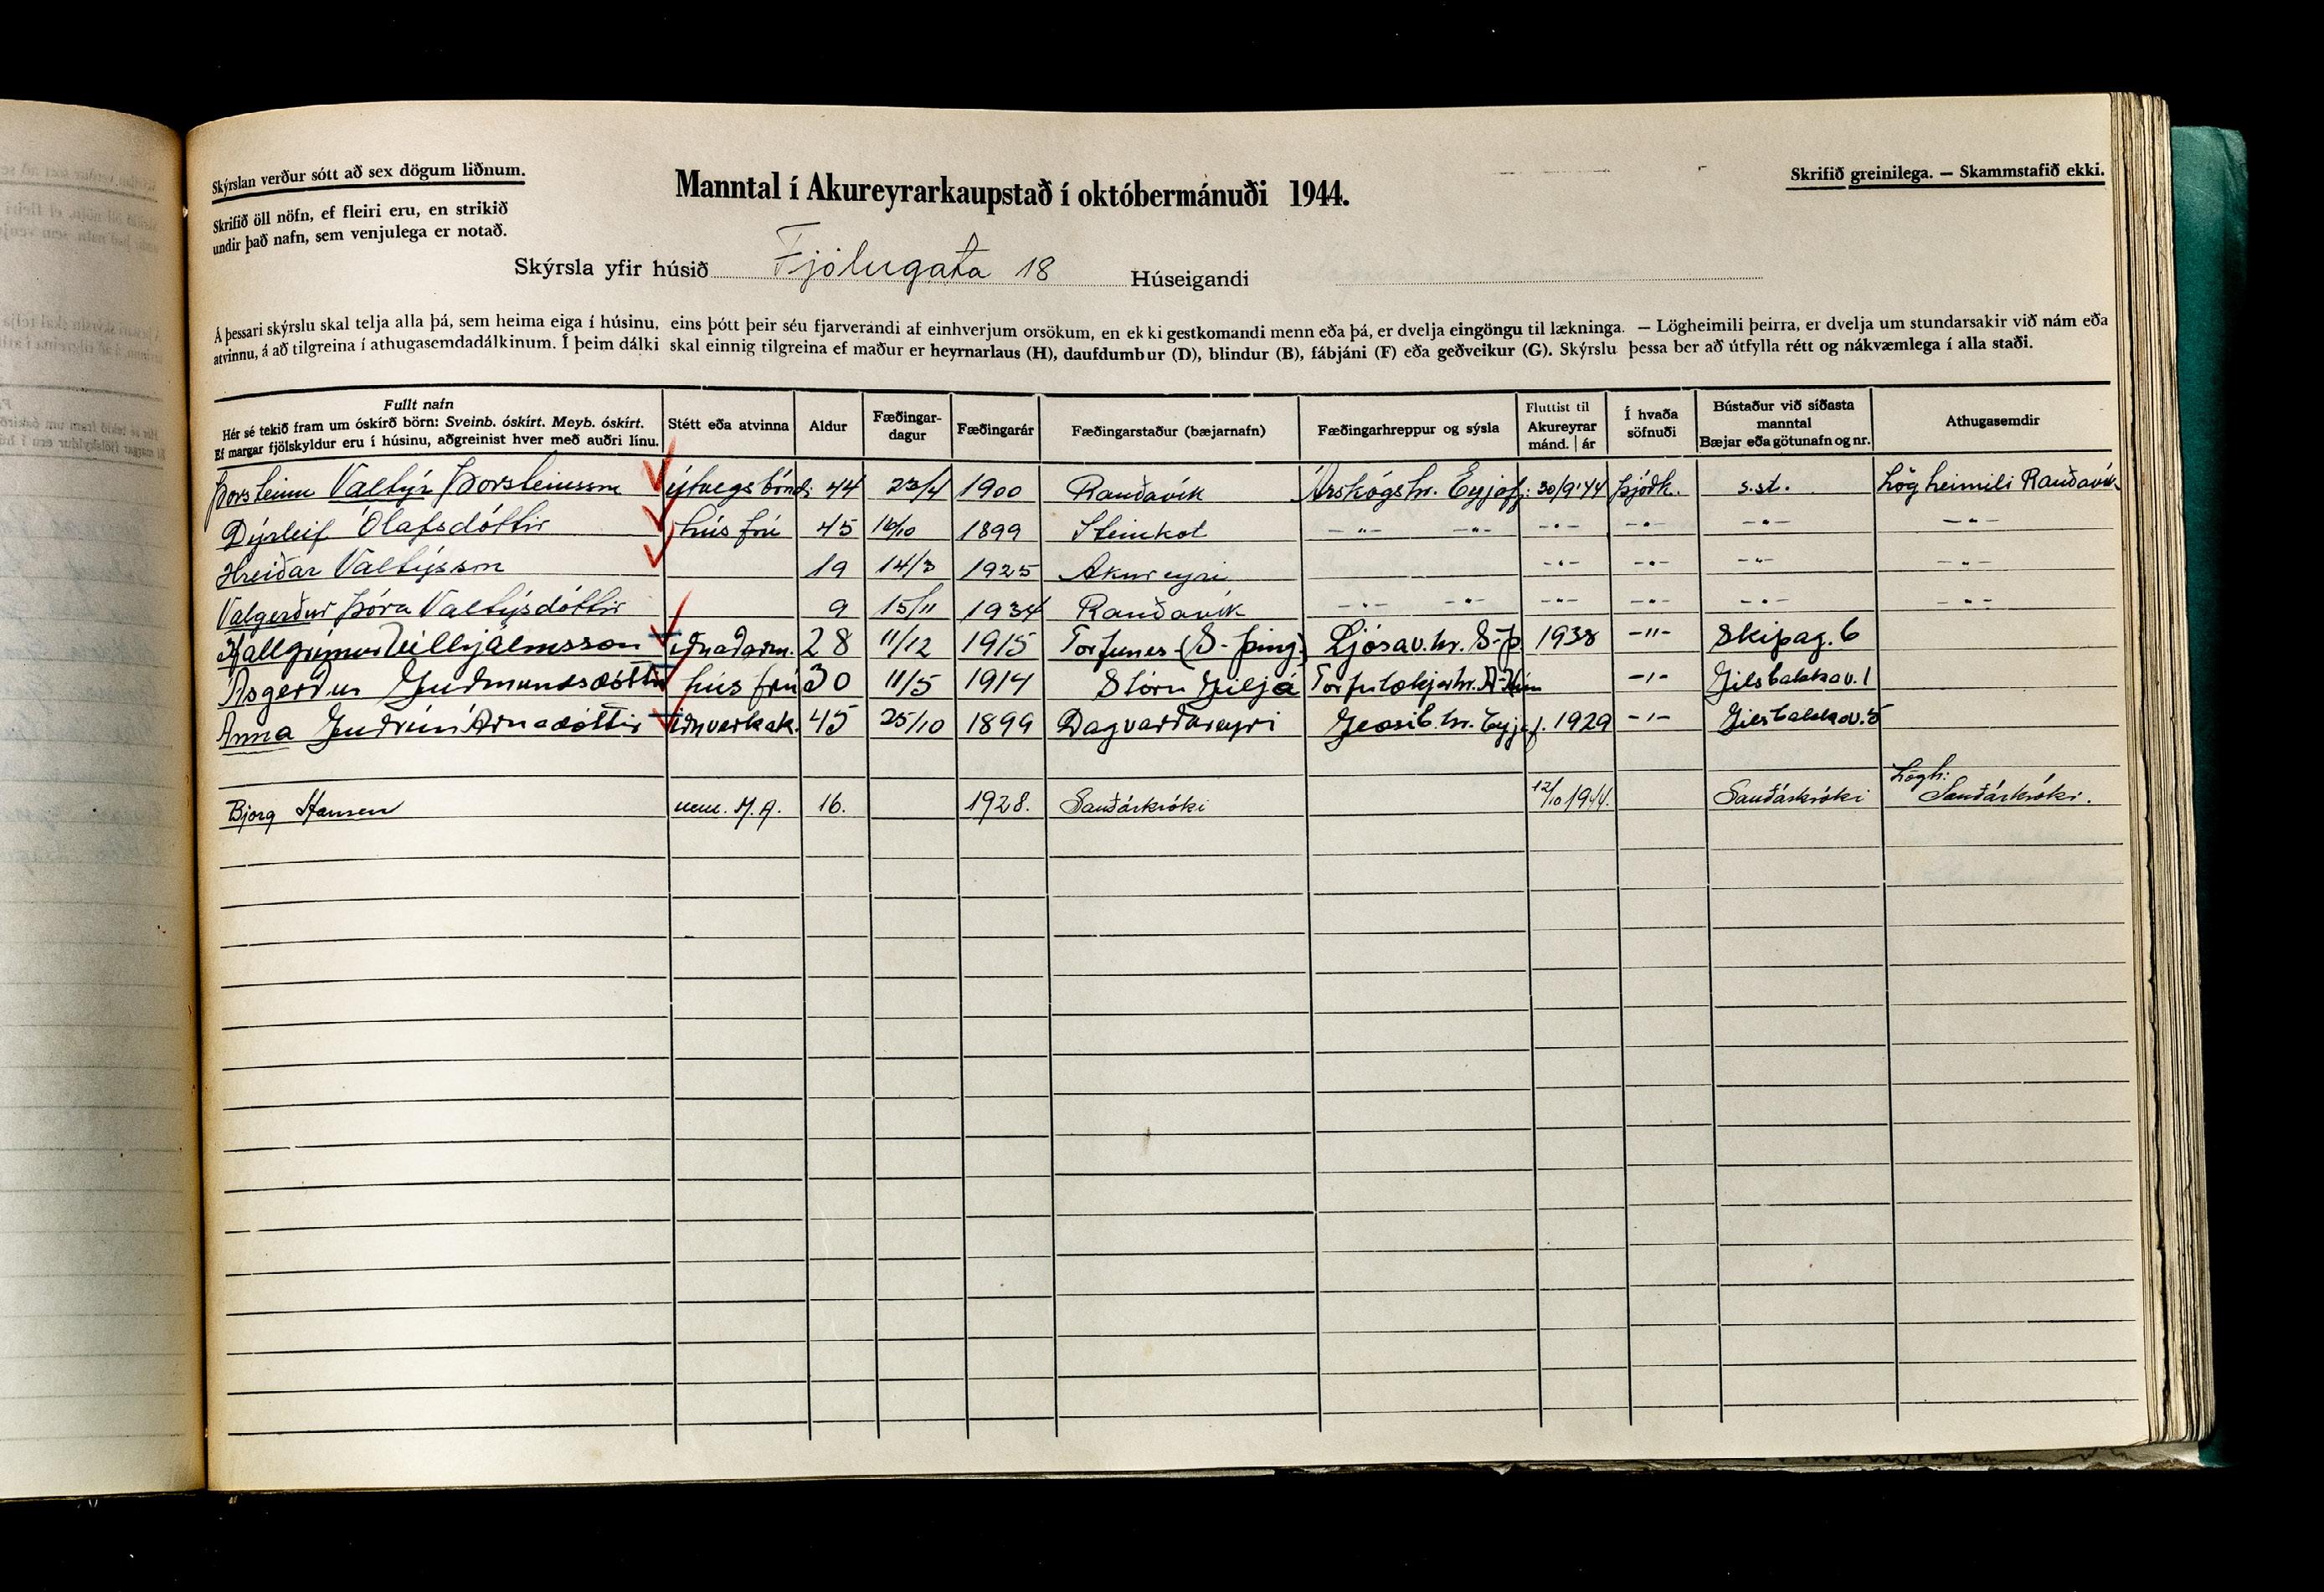 Skýrslan verður sótt að sex dögum liðnum.
Skrifið öll nöfn, ef fleiri eru, en strikið
undir það nafn, sem venjulega er notað.
Manntal í Akureyrarkaupstað í októbermánuði 1944.
Skrifið greinilega. — Skammstafið ekki.
Skýrsla yfir húsið Fjólugata 18 Húseigandi
Á þessari skýrslu skal telja alla þá, sem heima eiga í húsinu, eins þótt þeir séu fjarverandi af einhverjum orsökum, en ekki gestkomandi menn eða þá, er dvelja eingöngu til lækninga. — Lögheimili þeirra, er dvelja um stundarsakir við nám eða
atvinnu, á að tilgreina í athugasemdadálkinum. Í þeim dálki skal einnig tilgreina ef maður er heyrnarlaus (H), daufdumbur (D), blindur (B), fábjáni (F) eða geðveikur (G). Skýrslu þessa ber að útfylla rétt og nákvæmlega í alla staði.
Fullt nafn
Hér sé tekið fram um óskírð börn: Sveinb. óskírt. Meyb. óskírt.
Ef margar fjölskyldur eru í húsinu, aðgreinist hver með auðri línu.
Stétt eða atvinna
Aldur
Fæðingar-
dagur
Fæðingarár
Fæðingarstaður (bæjarnafn)
Fæðingarhreppur og sýsla
Fluttist til
Akureyrar
mánd. | ár
Í hvaða
söfnuði
Bústaður við síðasta
manntal
Bæjar eða götunafn og nr.
Athugasemdir
Þorsteinn Valtýr Þorsteinsson útvegsbóndi 44 23/4 1900 Rauðavík Árskógshr. Eyjafj. 30/9'44 Þjóðk. s.st. Lögheimili Rauðavík
Dýrleif Ólafsdóttir húsfrú 45 16/10 1899 Steinkot -"- -"- -"- -"- -"- -"-
Hreiðar Valtýsson 19 14/3 1925 Akureyri -"- -"- -"- -"-
Valgerður Þóra Valtýsdóttir 9 15/11 1934 Rauðavík -"- -"- -"- -"- -"- -"-
Hallgrímur Vilhjálmsson iðnaðarm. 28 11/12 1915 Torfunes (S-Þing.) Ljósav.hr. S-Þ 1938 -"- Skipag. 6
Ásgerður Guðmundsdóttir húsfrú 30 11/5 1914 Stóru Giljá Torfulækjarhr. A-Hún -"- Gilsbakkav. 1
Anna Guðrún Árnadóttir iðnverkak. 45 25/10 1899 Dagverðareyri Glæsib.hr. Eyjaf. 1929 -"- Gilsbakkav. 5
Bjorg Hansen nem. M.A. 16. 1928. Sauðárkróki 12/10 1944. Sauðárkróki Lögh: Sauðárkróki.